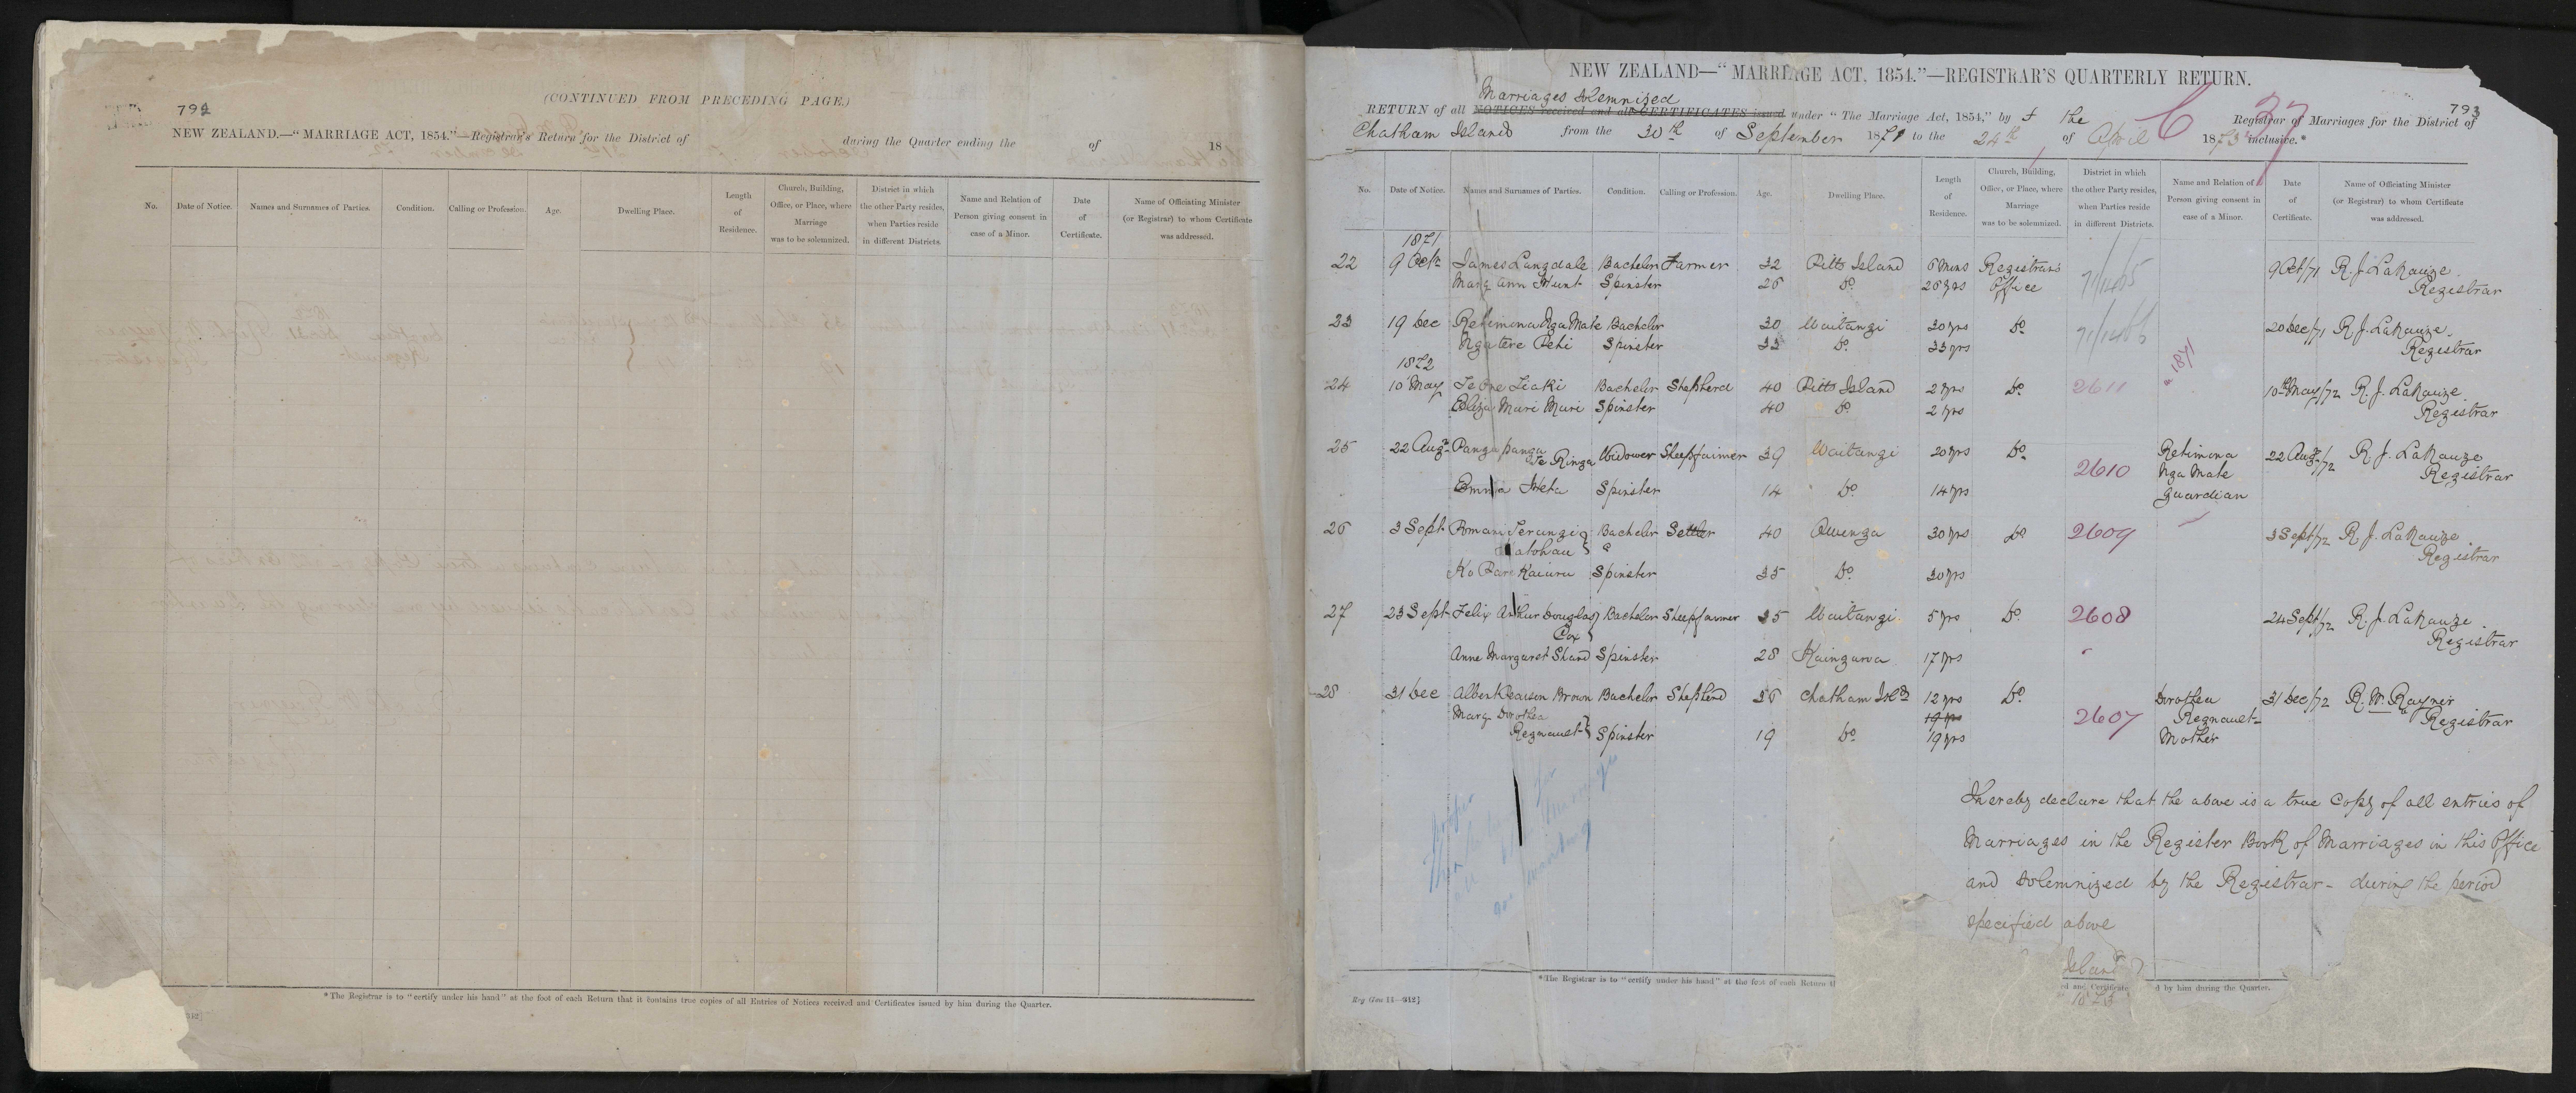 792
(CONTINUED FROM PRECEDING PAGE.)
NEW ZEALAND.—"MARRIAGE ACT, 1854."—Registrar's Return for the District of during the Quarter ending the of 18
No. Date of Notice. Names and Surnames of Parties. Condition. Calling or Profession. Age. Dwelling Place. Length of Residence. Church, Building, Office, or Place, where Marriage was to be solemnized. District in which the other Party resides, when Parties reside in different Districts. Name and Relation of Person giving consent in case of a Minor. Date of Certificate. Name of Officiating Minister (or Registrar) to whom Certificate was addressed.
*The Registrar is to "certify under his hand" at the foot of each Return that it contains true copies of all Entries of Notices received and Certificates issued by him during the Quarter.
NEW ZEALAND—"MARRIAGE ACT, 1854."—REGISTRAR'S QUARTERLY RETURN.
793
Marriages Solemnized
RETURN of all NOTICES received and all CERTIFICATES issued under "The Marriage Act, 1854," by the Registrar of Marriages for the District of
Chatham Islands from the 30th of September 1871 to the 24th of April 1873 inclusive.*
No. Date of Notice. Names and Surnames of Parties. Condition. Calling or Profession. Age. Dwelling Place. Length of Residence. Church, Building, Office, or Place, where Marriage was to be solemnized. District in which the other Party resides, when Parties reside in different Districts. Name and Relation of Person giving consent in case of a Minor. Date of Certificate. Name of Officiating Minister (or Registrar) to whom Certificate was addressed.
1871
22 9 Octr James Langdale Bachelor Farmer 32 Pitts Island 6 Mns Registrar's 71/1465 9 Oct/71 R. J. LaNauze
Mary Ann Hunt Spinster 26 Do 26 yrs Office Registrar
23 19 Dec Retimona Nga Mate Bachelor 30 Waitangi 30 yrs Do 71/1466 20 Dec/71 R. J. LaNauze
Ngatere Pehi Spinster 33 Do 33 yrs Registrar
1872 1871
24 10 May Teone Tiaki Bachelor Shepherd 40 Pitts Island 2 yrs Do 2611 10th May/72 R. J. LaNauze
Eliza Muri Muri Spinster 40 Do 2 yrs Registrar
25 22 Augt Pangapanga Te Ringa Widower Sheepfarmer 39 Waitangi 20 yrs Do 2610 Retimona 22 Augt/72 R. J. LaNauze
Nga Mate Registrar
Emma Heta Spinster 14 Do 14 yrs Guardian
26 3 Sept Romani Terangi Bachelor Settler 40 Owenga 30 yrs Do 2609 3 Sept/72 R. J. LaNauze
atohau Registrar
Ko Pare Kaiuru Spinster 35 Do 30 yrs
27 23 Sept Felix Arthur Douglas Bachelor Sheepfarmer 35 Waitangi 5 yrs Do 2608 24 Sept/72 R. J. LaNauze
Cox Registrar
Anne Margaret Shand Spinster 28 Kaingaroa 17 yrs
28 31 Dec Albert Pearson Brown Bachelor Shepherd 36 Chatham Isds 12 yrs Do 2607 Dorothea 31 Dec/72 R. W. Rayner
Mary Dorothea 19 yrs Regnault Registrar
Regnault Spinster 19 Do 19 yrs Mother
I hereby declare that the above is a true copy of all entries of
Marriages in the Register Book of Marriages in this Office
and Solemnized by the Registrar - during the period
specified above
Island
1873
*The Registrar is to "certify under his hand" at the foot of each Return
and Certificate
d by him during the Quarter.